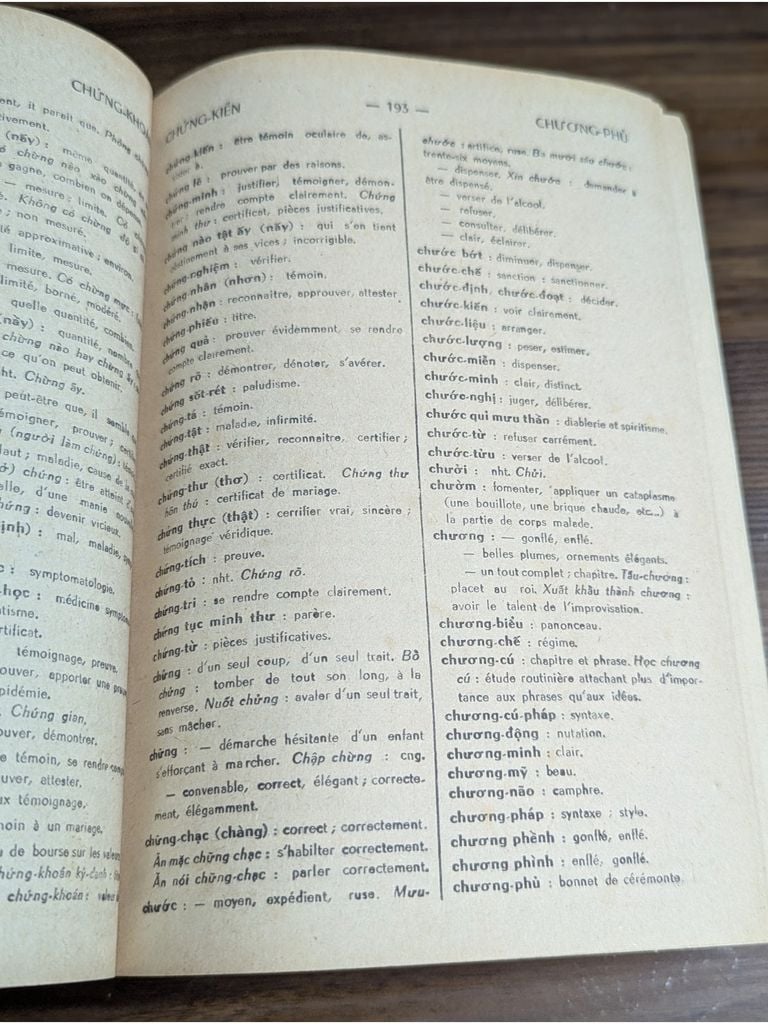 CHỨNG-KHOÁ
ent, il paraît que.
tivement.
(nãy) : même quantité
gagne, combien on dépense
— mesure ; limite. Có
é. Không có chừng độ
; non mesuré.
té approximative ; environ.
limite, mesure.
mesure. Có chừng mực :
limité, borné, modéré.
quelle quantité, combien
(nãy) : quantité, nombre
chừng nào hay chừng ấy
ce qu'on peut obtenir.
ht. Chừng ấy.
peut-être que, il semble
témoigner, prouver ;
(người làm chứng) :
aut ; maladie, cause de la
ở) chứng : être atteint d'
elle, d'une manie
chứng : devenir vicieux.
ịnh) : mal, maladie,
: symptomatologie.
-học : médicine
tisme.
rtificat.
témoignage, preuve,
ouver, apporter une
pidémie.
. Chứng gian,
ouver, démontrer.
e témoin, se rendre
uver, attester.
ux témoignage,
moin à un mariage,
u de bourse sur les valeurs
hứng-khoán ký-danh :
chứng-khoán : valeurs
CHỨNG-KIẾN
— 193 —
CHƯƠNG-PHÙ
chứng kiến : être témoin oculaire de, as-
sister à.
chứng lẽ : prouver par des raisons.
chứng-minh : justifier, témoigner, démon-
trer ; rendre compte clairement. Chứng
minh thư : certificat, pièces justificatives.
chứng nào tật ấy (nấy) : qui s'en tient
obstinément à ses vices ; incorrigible.
chứng-nghiệm : vérifier.
chứng-nhân (nhơn) : témoin.
chứng-nhận : reconnaitre, approuver, attester
chứng-phiếu : titre.
chứng quả : prouver évidemment, se rendre
compte clairement.
chứng rõ : démontrer, dénoter, s'avérer.
chứng sốt-rét : paludisme.
chứng-tá : témoin.
chứng-tật : maladie, infirmité.
chứng-thật : vérifier, reconnaitre, certifier ;
certifié exact.
chứng-thư (thơ) : certificat. Chứng thư
hôn thú : certificat de mariage.
chứng thực (thật) : cerrifier vrai, sincère ;
témoignage véridique.
chứng-tích : preuve.
chứng-tỏ : nht. Chứng rõ.
chứng-tri : se rendre compte clairement.
chứng tục minh thư : parère.
chứng-từ : pièces justificatives.
chửng : d'un seul coup, d'un seul trait. Bổ
chửng : tomber de tout son long, à la
renverse. Nuốt chửng : avaler d'un seul trait,
sans mâcher.
chững : — démarche hésitante d'un enfant
s'efforçant à marcher. Chập chững : cng.
— convenable, correct, élégant ; correcte-
ment, élégamment.
chững-chạc (chàng) : correct ; correctement.
Ăn mặc chững chạc : s'habilter correctement.
Ăn nói chững-chạc : parler correctement.
chước : — moyen, expédient, ruse. Mưu-
chước : artifice, ruse. Ba mươi sáu chước :
trente-six moyens.
— dispenser. Xin chước : demander à
être dispensé.
— verser de l'alcool.
— refuser.
— consulter, délibérer.
— clair, éclairer.
chước bớt : diminuer, dispenser.
chước-chế : sanction ; sanctionner.
chước-định, chước-đoạt : décider.
chước-kiến : voir clairement.
chước-liệu : arranger.
chước-lượng : peser, estimer.
chước-miễn : dispenser.
chước-minh : clair, distinct.
chước-nghị : juger, délibérer.
chước qui mưu thần : diablerie et spiritisme.
chước-từ : refuser carrément.
chước-tửu : verser de l'alcool.
chười : nht. Chửi.
chườm : fomenter, appliquer un cataplasme
(une bouillote, une brique chaude, etc...) à
la partie de corps malade.
chương : — gonflé, enflé.
— belles plumes, ornements élégants.
— un tout complet ; chapitre. Tấu-chương :
placet au roi. Xuất khẩu thành chương :
avoir le talent de l'improvisation.
chương-biểu : panonceau.
chương-chế : régime.
chương-cú : chapitre et phrase. Học chương
cú : étude routinière attachant plus d'impor-
tance aux phrases qu'aux idées.
chương-cú-pháp : syntaxe.
chương-động : nutation.
chương-minh : clair.
chương-mỹ : beau.
chương-não : camphre.
chương-pháp : syntaxe ; style.
chương phềnh : gonflé, enflé.
chương phình : enflé, gonflé.
chương-phủ : bonnet de cérémonte.